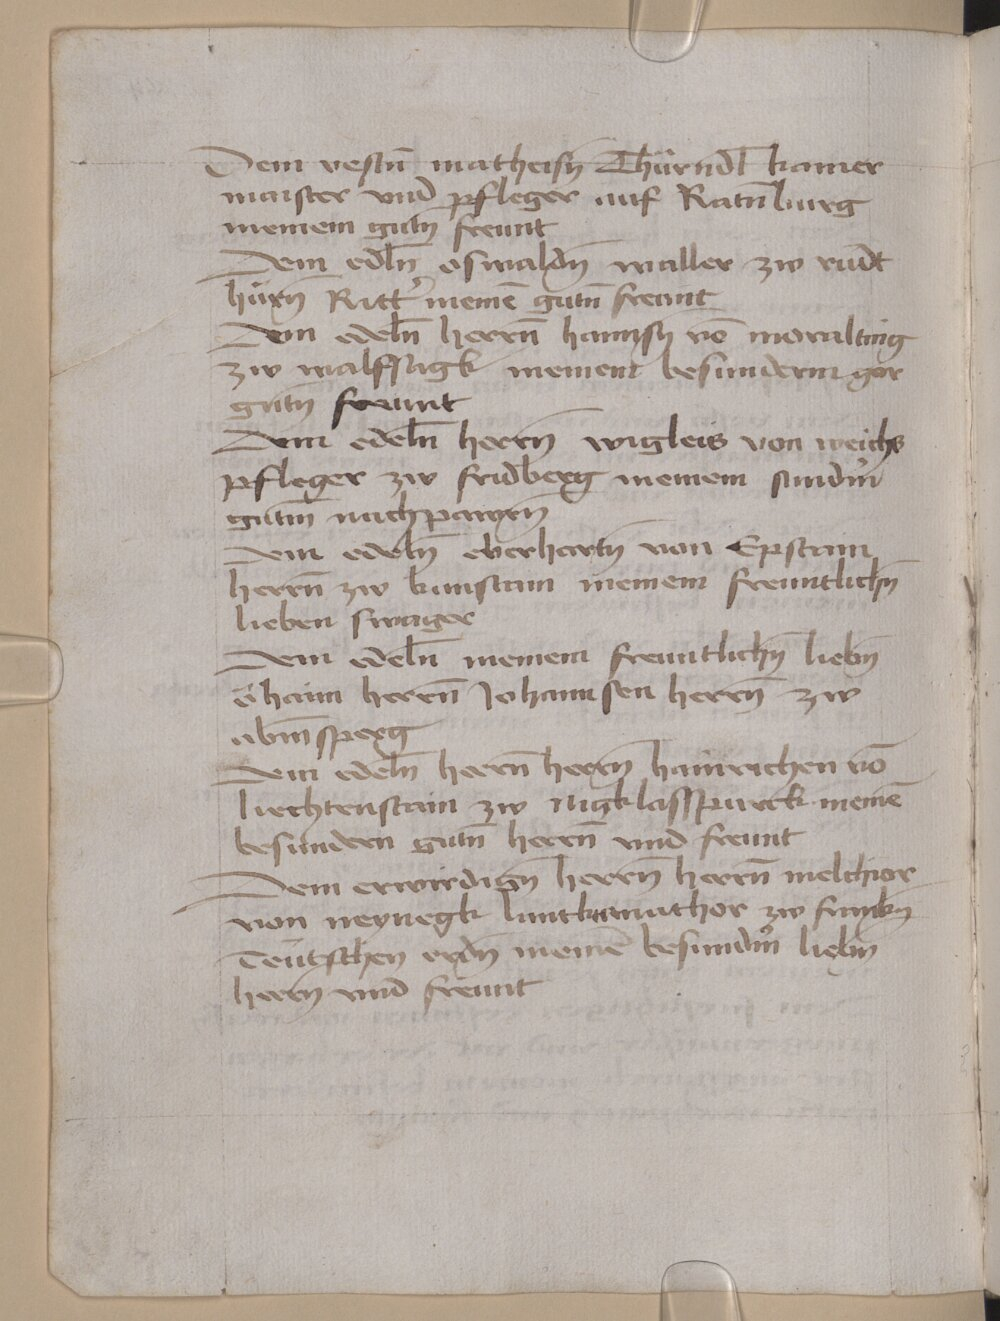 Dem vestn̄ matheisn̄ Thürndl kamer
maister vnd pfleger auf Ratn̄burg
meinem gutn̄ freunt
Dem edln̄ oswaldn̄ waller zw rudt
hürn̄ Ritter meinē gutn̄ freunt
Dem edeln̄ herrn̄ hannsn̄ vō
zw meinem besundern gar
gutn̄ freunt
Dem edeln̄ herrn̄ wigleis von weichs
pfleger zw fridberg meinem sundern̄
gutn̄ nachpawrn̄
Dem edeln̄ eberhartn̄ von Epstain
herrn̄ zw kunstain meinem freuntlichn̄
lieben swager
Dem edeln̄ meinem freuntlichn̄ liebn̄
öhaim herrn̄ Johannsen herrn̄ zw
abm̄sperg
Dem edeln̄ herrn̄ herrn̄ hainrichen vō
liechtenstain zw Nigklasspurck meinē
besundern gutn̄ herrn̄ vnd freunt
Dem erwirdign̄ herrn̄ herrn̄ melchior
von neynegk zw franckn̄
Teutschen ordn̄ meinē besundern̄ liebn̄
herrn̄ vnd freunt